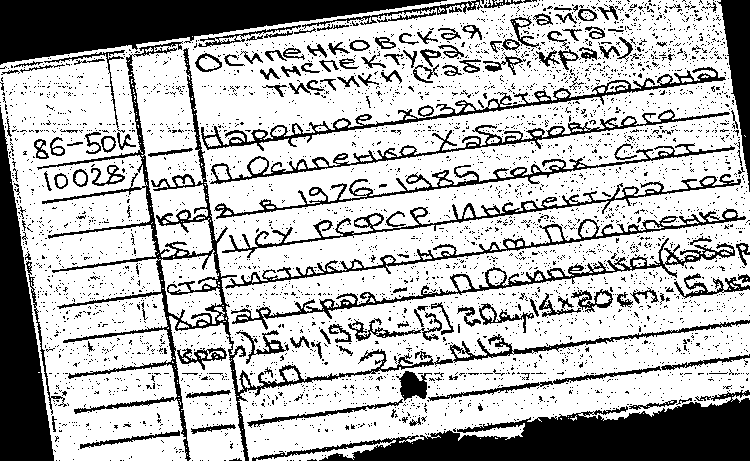 Осипенковская район.
инспектура гос. ста-
тистики (Хабар. край).
86-50к
10028
Народное хозяйство района
им. П. Осипенко Хабаровского
края в 1976-1985 годах. Стат.
сб. / ЦСУ РСФСР, Инспектура гос.
статистики р-на им. П. Осипенко
Хабар. края. - с. П. Осипенко (Хабар.
край). Б.и., 1986. - [3], 20с., 14х20 cm. - 15 экз.
ДСП. 2 кз. N13